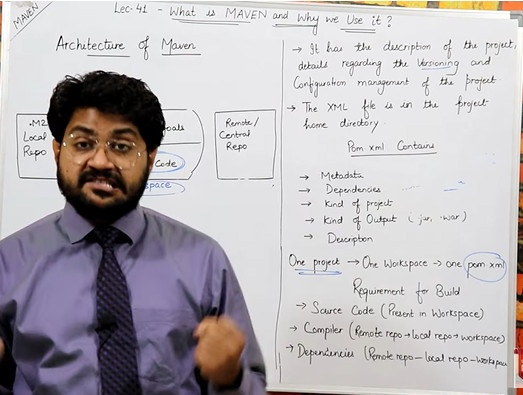 MAVEN
Lec-41 - What is MAVEN and Why we Use it?
Architecture of Maven
.M2
Local
Repo
oals
Code
space
Remote/
Central
Repo
→ It has the description of the project,
details regarding the Versioning and
Configuration management of the project
→ The XML file is in the project
home directory.
Pom.xml Contains
→ Metadata
→ Dependencies
→ Kind of project
→ Kind of Output (.jar, .war)
→ Description
One project → One Workspace → one pom xml
Requirement for Build
→ Source Code (Present in Workspace)
→ Compiler (Remote repo → local repo → workspace)
→ Dependencies (Remote repo — local repo — workspace